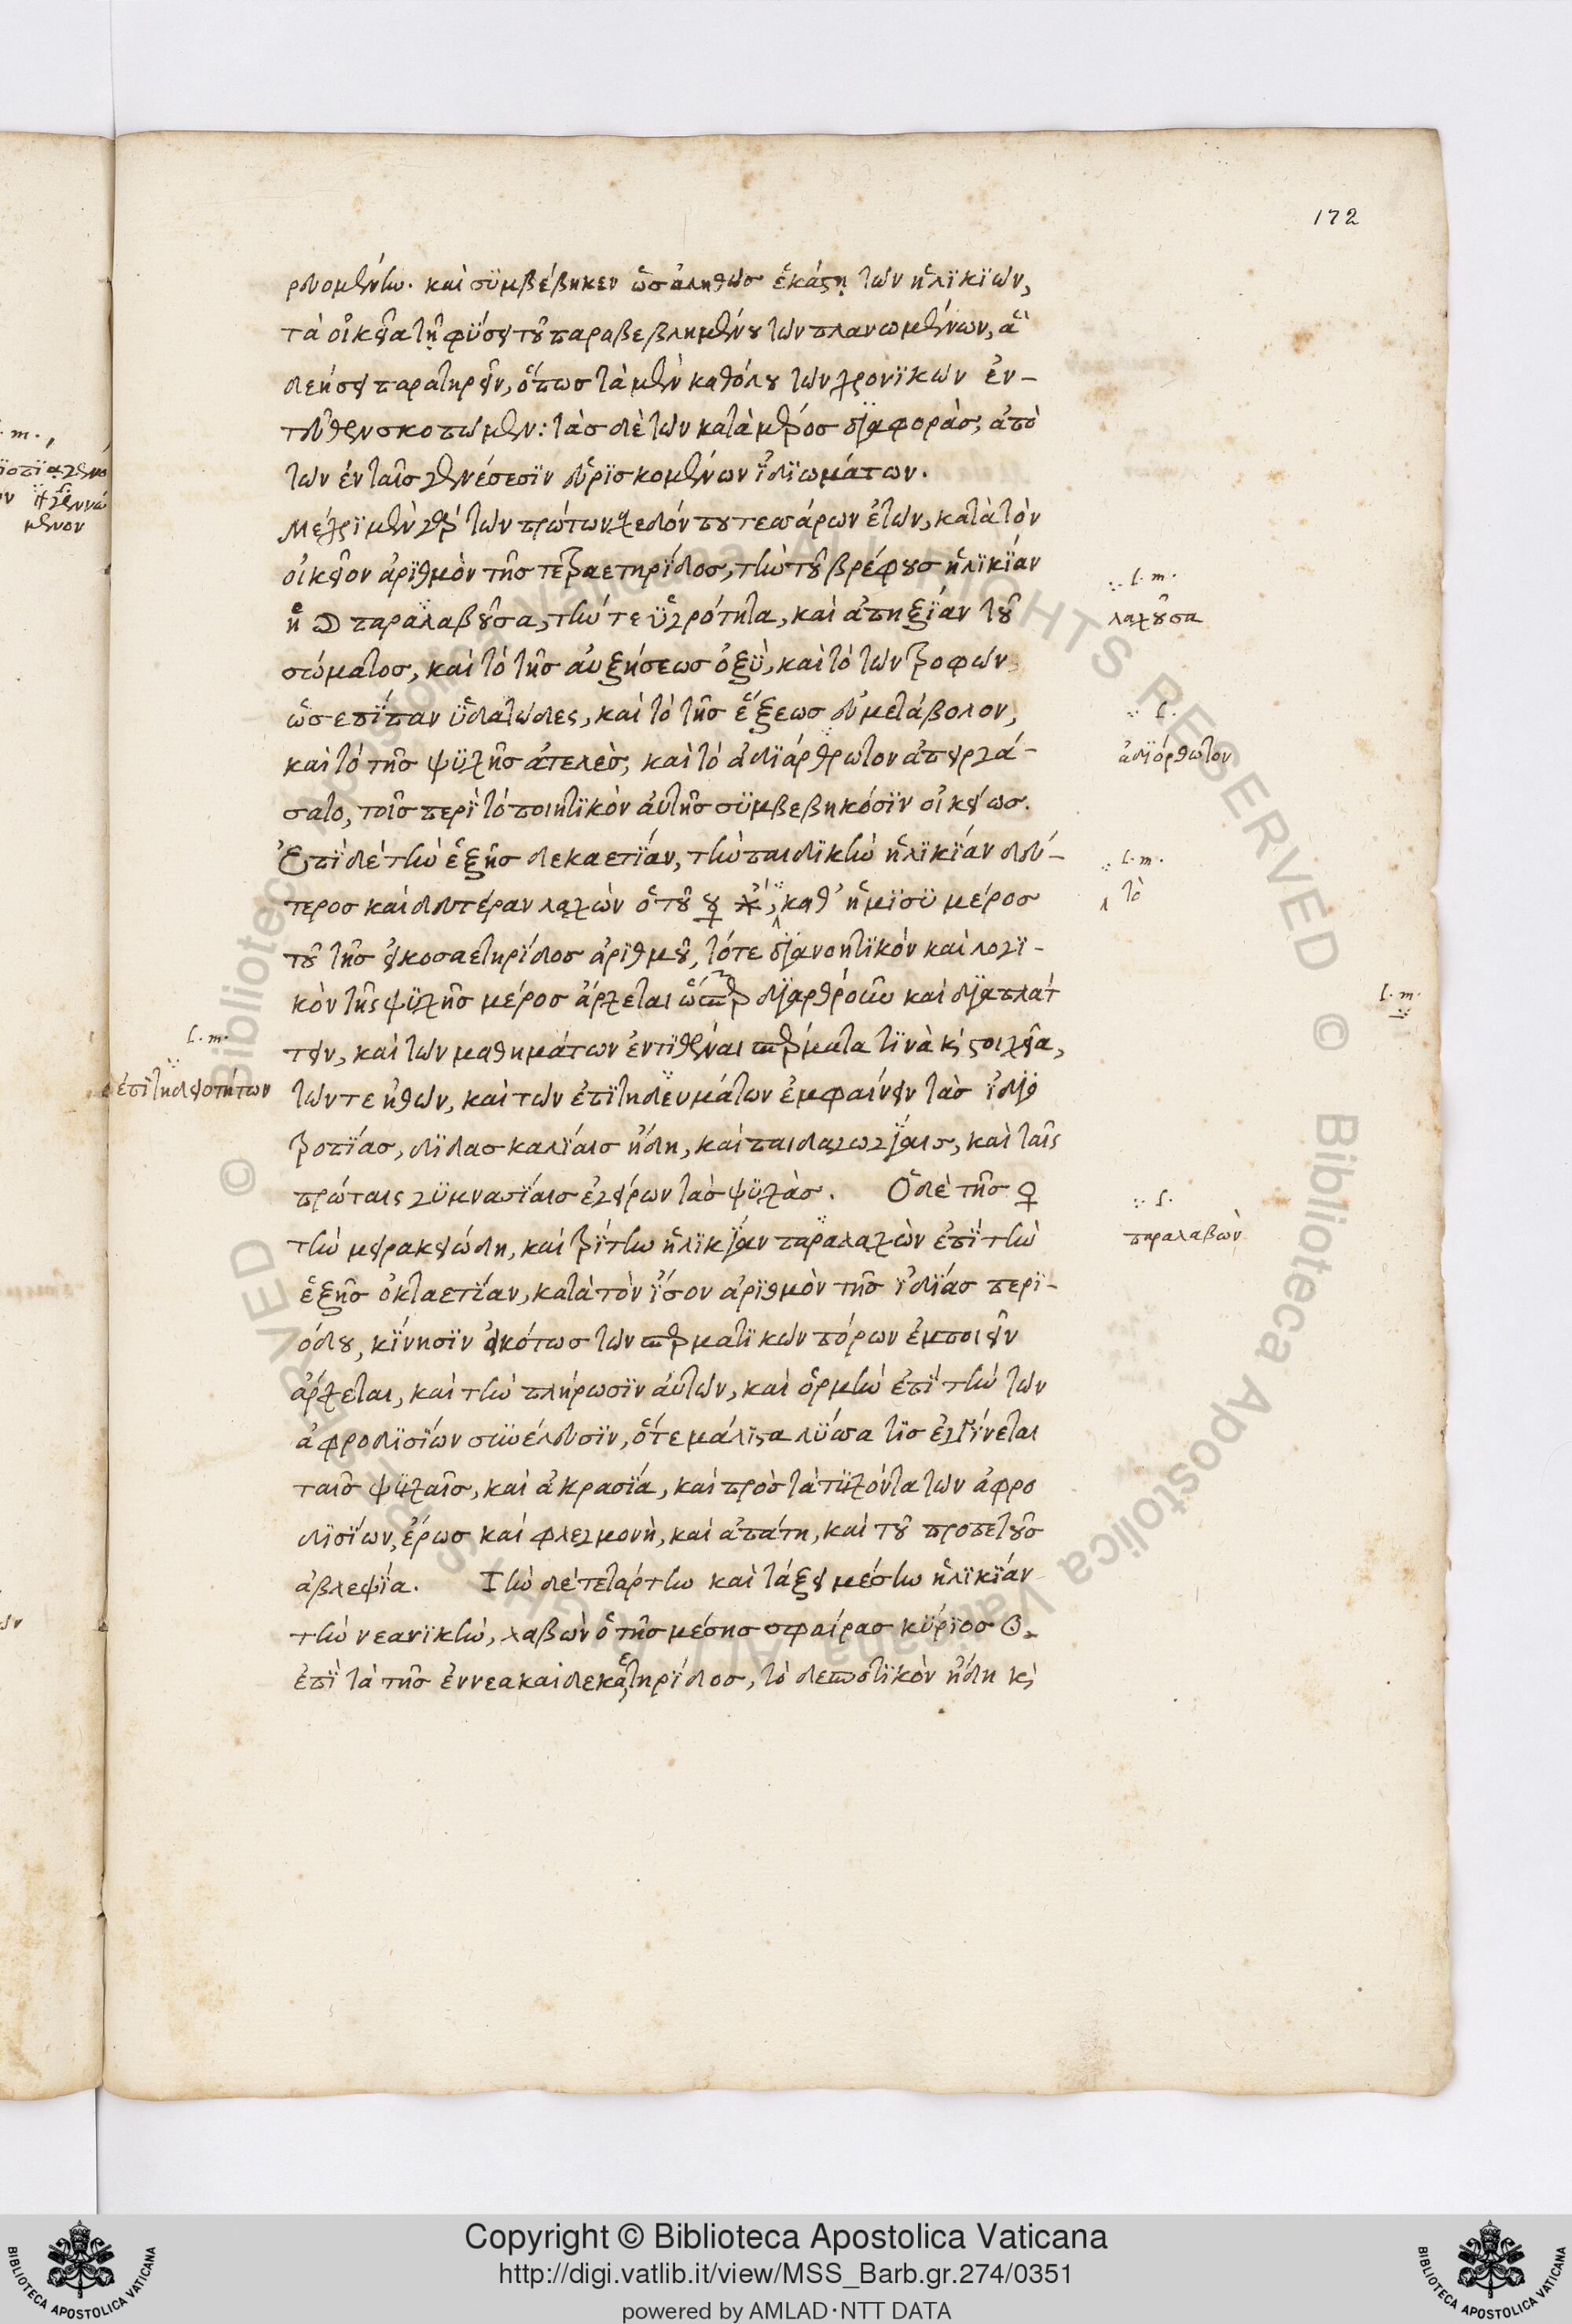 172
ρουομένην. καὶ συμβέβηκεν ὡς ἀληθῶς ἑκάστῃ τῶν ἡλικιῶν,
τὰ οἰκεῖα τῇ φύσει τοῦ παραβεβλημένου τῶν πλανωμένων, ἃ
δεήσει παρατηρεῖν, ὅπως τὰ μὲν καθόλου τῶν χρονικῶν ἐν-
τεῦθεν σκοπῶμεν: τὰς δὲ τῶν κατὰ μέρος διαφορὰς, ἀπὸ
τῶν ἐν ταῖς γενέσεσιν εὑρισκομένων ἰδιωμάτων.
Μέχρι μὲν γὰρ τῶν πρώτων σχεδόν που τεσσάρων ἐτῶν, κατὰ τὸν
οἰκεῖον ἀριθμὸν τῆς τετραετηρίδος, τὴν τοῦ βρέφους ἡλικίαν
ἡ ☽ παραλαβοῦσα, τήν τε ὑγρότητα, καὶ ἀπηξίαν τοῦ
σώματος, καὶ τὸ τῆς αὐξήσεως ὀξὺ, καὶ τὸ τῶν τροφῶν
ὡς επίπαν ὑδατῶδες, καὶ τὸ τῆς ἕξεως εὐμετάβολον,
καὶ τὸ τῆς ψυχῆς ἀτελὲς, καὶ τὸ ἀδιάρθρωτον ἀπειργά-
σατο, τοῖς περὶ τὸ ποιητικὸν αὐτῆς συμβεβηκόσιν οἰκείως.
Ἐπὶ δὲ τὴν ἑξῆς δεκαετίαν, τὴν παιδικὴν ἡλικίαν δεύ-
τερος καὶ δευτέραν λαχὼν ὁ τοῦ ☿ ἀστήρ, καθ' ἥμισυ μέρος
τοῦ τῆς εἰκοσαετηρίδος ἀριθμοῦ, τότε διανοητικὸν καὶ λογι-
κὸν τῆς ψυχῆς μέρος ἄρχεται ὥσπερ διαρθροῦν καὶ διαπλατ
τειν, καὶ τῶν μαθημάτων ἐντιθέναι σπέρματα τινὰ κὶ στοιχεῖα,
τῶν τε ηθῶν, καὶ τῶν ἐπιτηδευμάτων ἐμφαίνειν τὰς ἰδιο
τροπίας, διδασκαλίαις ἤδη, καὶ παιδαγωγίαις, καὶ ταῖς
πρώταις γυμνασίαις ἐγείρων τὰς ψυχάς. Ὁ δὲ τῆς ♀
τὴν μειρακειώδη, καὶ τρίτην ἡλικίαν παραλαχὼν ἐπὶ τὴν
ἑξῆς ὀκταετίαν, κατὰ τὸν ἴσον ἀριθμὸν τῆς ἰδίας περι-
όδου, κίνησιν εἰκότως τῶν σπερματικῶν πόρων ἐμποιεῖν
ἄρχεται, καὶ τὴν πλήρωσιν αὐτῶν, καὶ ὁρμὴν ἐπὶ τὴν τῶν
ἀφροδισίων συνέλευσιν, ὅτε μάλιστα λύσσα τις ἐγγίνεται
ταῖς ψυχαῖς, καὶ ἀκρασία, καὶ πρὸς τὰ τυχόντα τῶν ἀφρο
δισίων, ἔρως καὶ φλεγμονὴ, καὶ ἀπάτη, καὶ τοῦ προπετοῦς
ἀβλεψία. Τὴν δὲ τετάρτην καὶ τάξει μέσην ἡλικίαν
τὴν νεανικὴν, λαβὼν ὁ τῆς μέσης σφαίρας κύριος ☉
ἐπὶ τὰ τῆς ἐννεακαιδεκαετηρίδος, τὸ δεσποτικὸν ἤδη κὶ
l. m.
λαχοῦσα
l.
ἀδιόρθωτον
l. m.
τὸ
l. m.
l. m.
ἐπιτηδειοτήτων
l.
παραλαβὼν
Copyright © Biblioteca Apostolica Vaticana
http://digi.vatlib.it/view/MSS_Barb.gr.274/0351
powered by AMLAD·NTT DATA
BIBLIOTECA APOSTOLICA VATICANA
BIBLIOTECA APOSTOLICA VATICANA